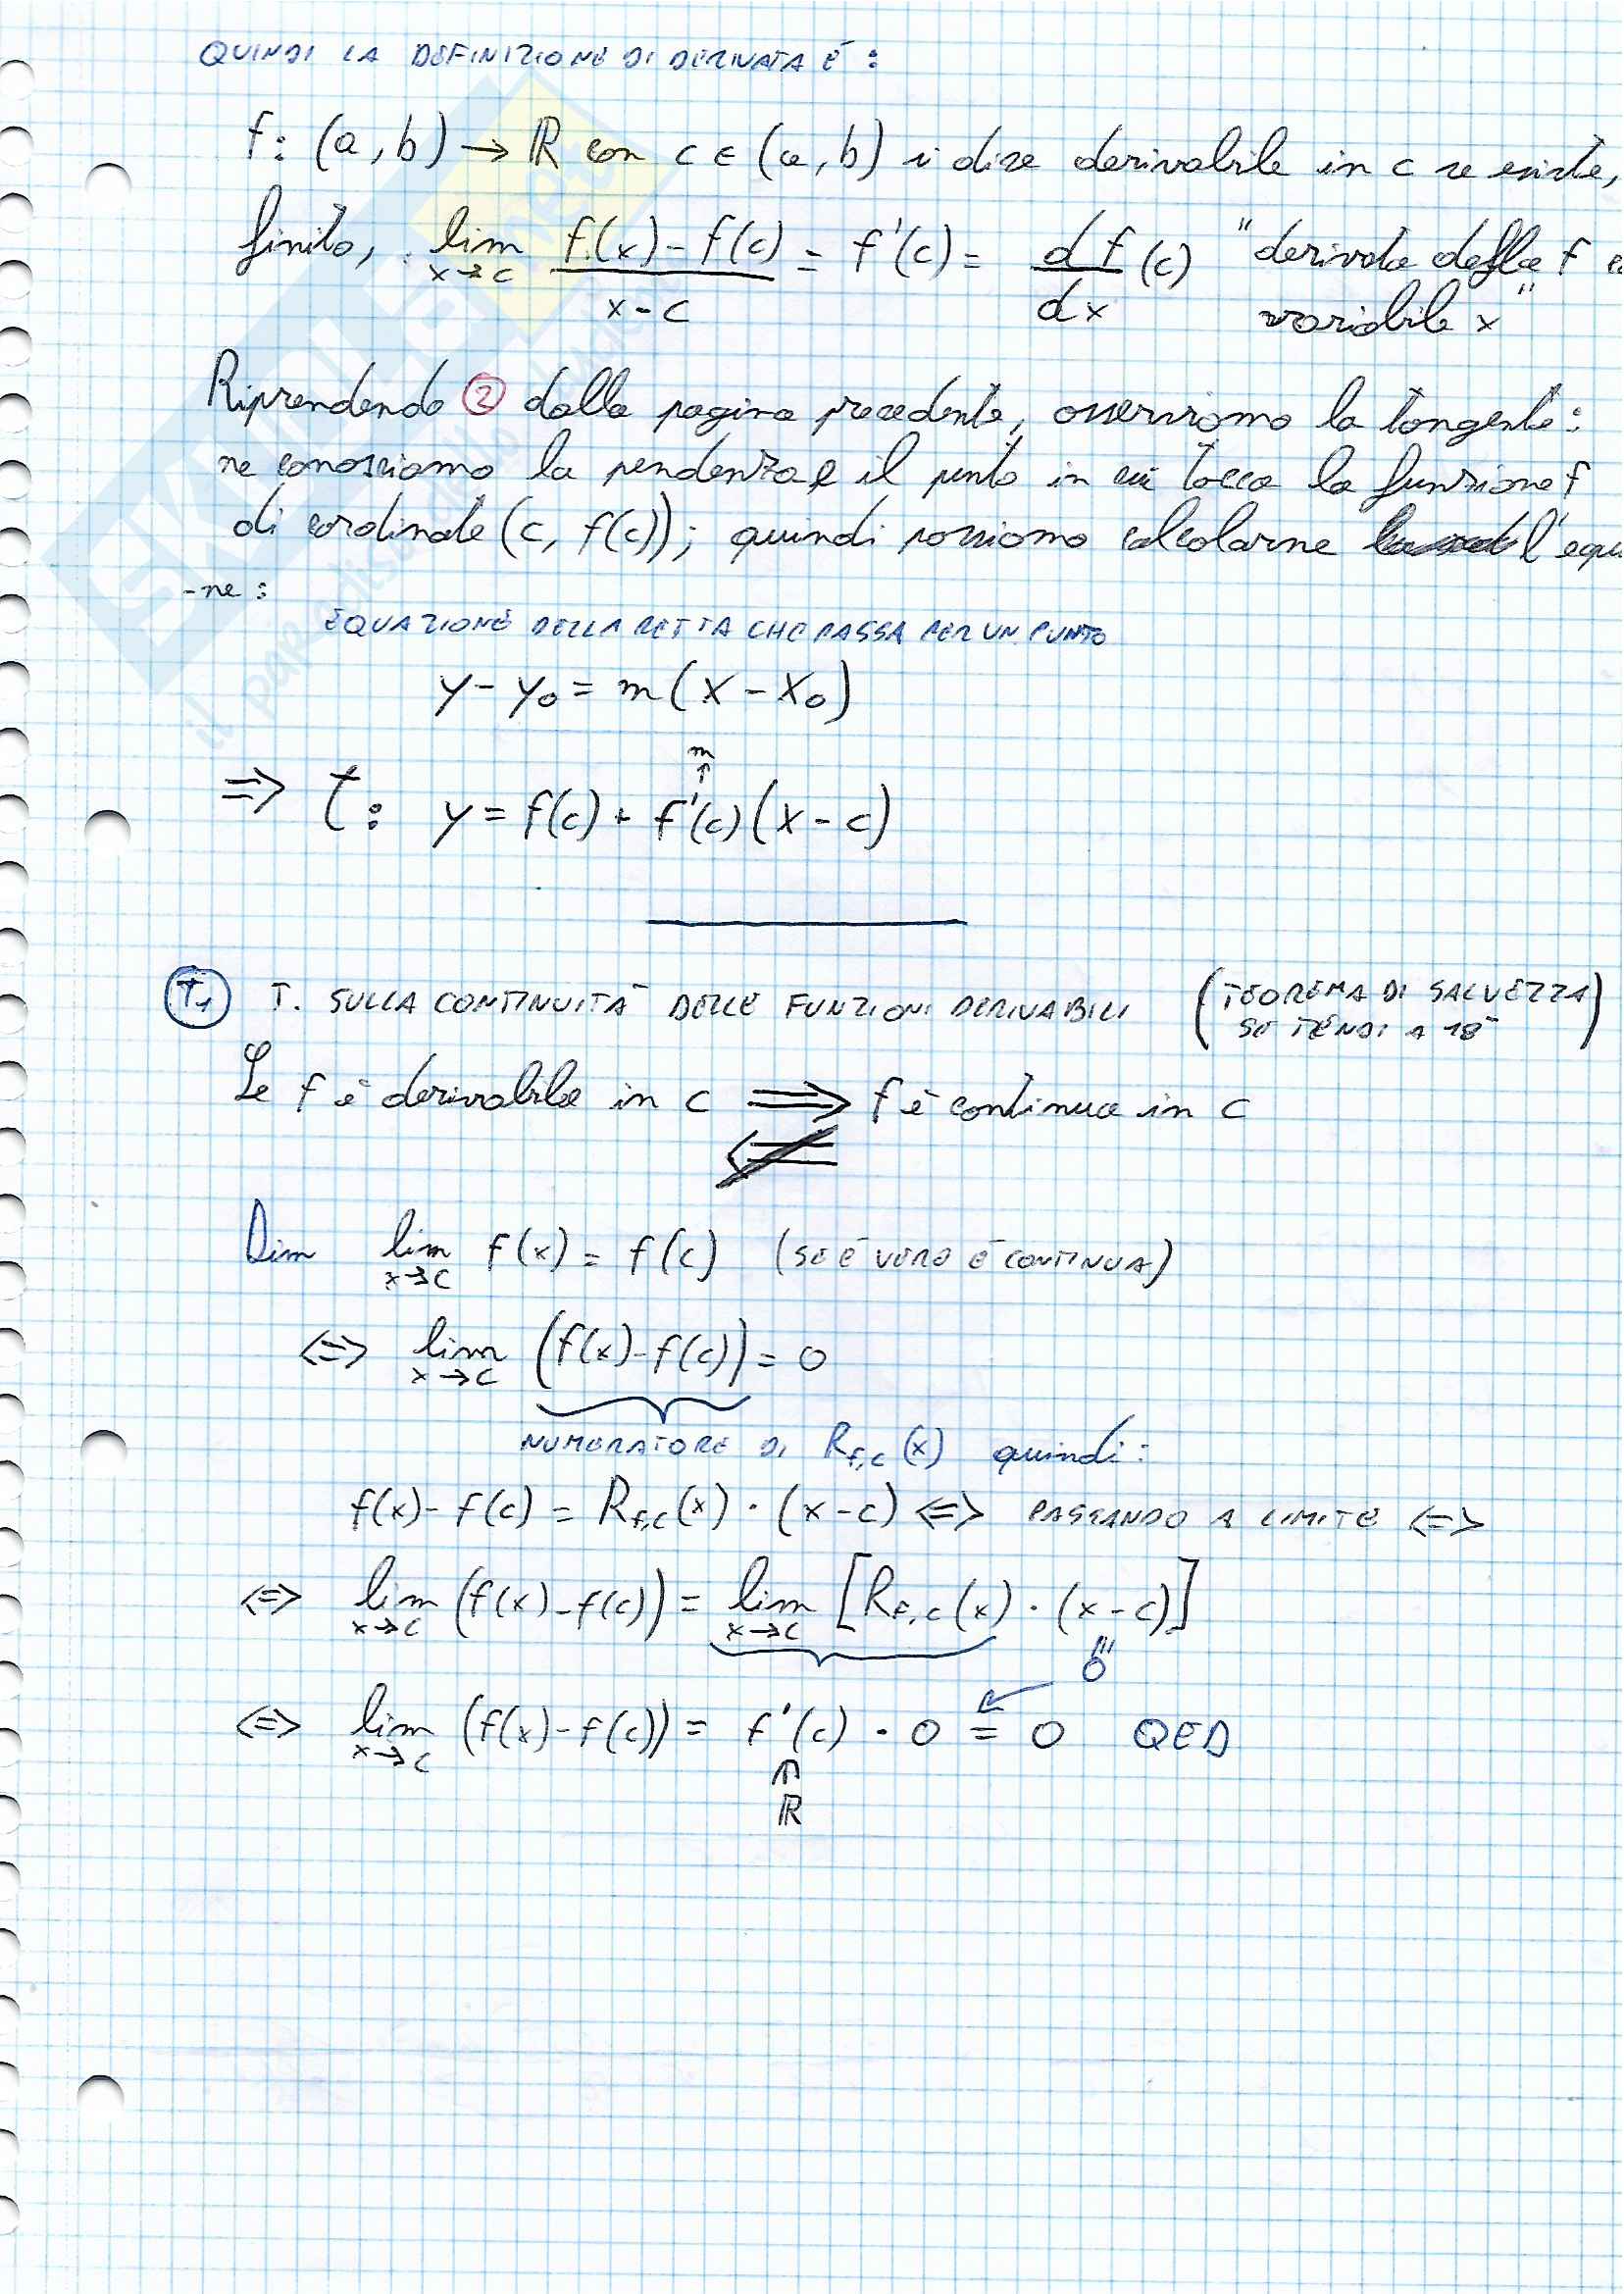 QUINDI LA DEFINIZIONE DI DERIVATA È :
f: (a, b) → ℝ con c ∈ (a, b) si dice derivabile in c se esiste,
finito, lim x→c (f(x) - f(c)) / (x - c) = f'(c) = df/dx (c) "derivata della f
variabile x"
Riprendendo ② dalla pagina precedente, osserviamo la tangente:
ne conosciamo la pendenza e il punto in cui tocca la funzione f
di cordinate (c, f(c)); quindi possiamo calcolarne l'equ
-ne :
EQUAZIONE DELLA RETTA CHE PASSA PER UN PUNTO
y - y₀ = m (x - x₀)
m
↑
⇒ t: y = f(c) + f'(c) (x - c)
T₁ T. SULLA CONTINUITÀ DELLE FUNZIONI DERIVABILI (TEOREMA DI SALVEZZA
SE TENDI A 18⁻)
Se f è derivabile in c ⟹ f è continua in c
⟸̸
Dim lim x→c f(x) = f(c) (SE È VERO È CONTINUA)
⇔ lim x→c (f(x) - f(c)) = 0
NUMERATORE DI R_f,c (x) quindi:
f(x) - f(c) = R_f,c (x) · (x - c) ⇔ PASSANDO A LIMITE ⇔
⇔ lim x→c (f(x) - f(c)) = lim x→c [R_f,c (x) · (x - c)]
0
⇔ lim x→c (f(x) - f(c)) = f'(c) · 0 = 0 QED
∩
ℝ